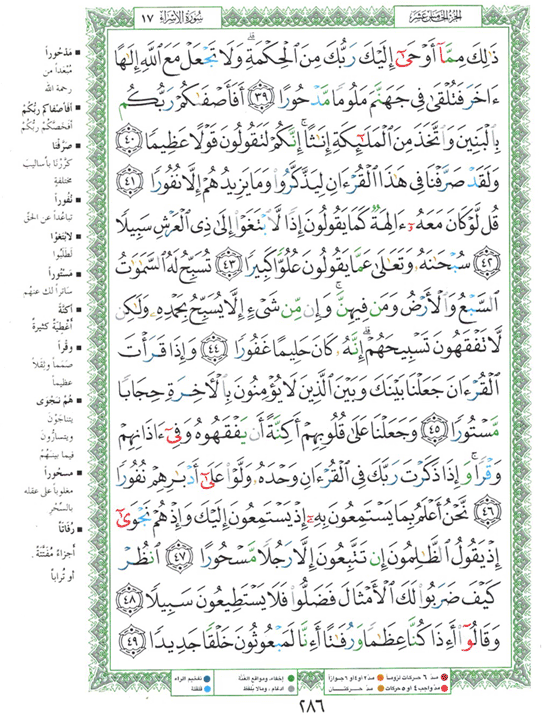 ١٧ سُورَةُ الإِسْرَاءِ الجُزْءُ الخَامِسَ عَشَرَ
ذَٰلِكَ مِمَّآ أَوۡحَىٰٓ إِلَيۡكَ رَبُّكَ مِنَ ٱلۡحِكۡمَةِۗ وَلَا تَجۡعَلۡ مَعَ ٱللَّهِ إِلَٰهًا
ءَاخَرَ فَتُلۡقَىٰ فِي جَهَنَّمَ مَلُومٗا مَّدۡحُورًا ٣٩ أَفَأَصۡفَىٰكُمۡ رَبُّكُم
بِٱلۡبَنِينَ وَٱتَّخَذَ مِنَ ٱلۡمَلَٰٓئِكَةِ إِنَٰثًاۚ إِنَّكُمۡ لَتَقُولُونَ قَوۡلًا عَظِيمٗا ٤٠
وَلَقَدۡ صَرَّفۡنَا فِي هَٰذَا ٱلۡقُرۡءَانِ لِيَذَّكَّرُواْ وَمَا يَزِيدُهُمۡ إِلَّا نُفُورٗا ٤١
قُل لَّوۡ كَانَ مَعَهُۥٓ ءَالِهَةٞ كَمَا يَقُولُونَ إِذٗا لَّٱبۡتَغَوۡاْ إِلَىٰ ذِي ٱلۡعَرۡشِ سَبِيلٗا
٤٢ سُبۡحَٰنَهُۥ وَتَعَٰلَىٰ عَمَّا يَقُولُونَ عُلُوّٗا كَبِيرٗا ٤٣ تُسَبِّحُ لَهُ ٱلسَّمَٰوَٰتُ
ٱلسَّبۡعُ وَٱلۡأَرۡضُ وَمَن فِيهِنَّۚ وَإِن مِّن شَيۡءٍ إِلَّا يُسَبِّحُ بِحَمۡدِهِۦ وَلَٰكِن
لَّا تَفۡقَهُونَ تَسۡبِيحَهُمۡۗ إِنَّهُۥ كَانَ حَلِيمًا غَفُورٗا ٤٤ وَإِذَا قَرَأۡتَ
ٱلۡقُرۡءَانَ جَعَلۡنَا بَيۡنَكَ وَبَيۡنَ ٱلَّذِينَ لَا يُؤۡمِنُونَ بِٱلۡأٓخِرَةِ حِجَابٗا
مَّسۡتُورٗا ٤٥ وَجَعَلۡنَا عَلَىٰ قُلُوبِهِمۡ أَكِنَّةً أَن يَفۡقَهُوهُ وَفِيٓ ءَاذَانِهِمۡ
وَقۡرٗاۚ وَإِذَا ذَكَرۡتَ رَبَّكَ فِي ٱلۡقُرۡءَانِ وَحۡدَهُۥ وَلَّوۡاْ عَلَىٰٓ أَدۡبَٰرِهِمۡ نُفُورٗا
٤٦ نَّحۡنُ أَعۡلَمُ بِمَا يَسۡتَمِعُونَ بِهِۦٓ إِذۡ يَسۡتَمِعُونَ إِلَيۡكَ وَإِذۡ هُمۡ نَجۡوَىٰٓ
إِذۡ يَقُولُ ٱلظَّٰلِمُونَ إِن تَتَّبِعُونَ إِلَّا رَجُلٗا مَّسۡحُورًا ٤٧ ٱنظُرۡ
كَيۡفَ ضَرَبُواْ لَكَ ٱلۡأَمۡثَالَ فَضَلُّواْ فَلَا يَسۡتَطِيعُونَ سَبِيلٗا ٤٨
وَقَالُوٓاْ أَءِذَا كُنَّا عِظَٰمٗا وَرُفَٰتًا أَءِنَّا لَمَبۡعُوثُونَ خَلۡقٗا جَدِيدٗا ٤٩
مَدْحُوراً
مُبْعَداً من
رحمة الله
أَفَأَصْفَاكُمْ رَبُّكُمْ
أَفَخَصَّكُمْ رَبُّكُمْ
صَرَّفْنَا
كَرَّرْنَا بأساليبَ
مختلفةٍ
نُفُوراً
تباعُداً عن الحقِّ
لَابْتَغَوْا
لَطَلَبُوا
مَسْتُوراً
ساتراً لك عنهُم
أَكِنَّةً
أَغْطِيَةً كثيرةً
وَقْراً
صَمَماً وثِقَلاً
عظيماً
هُمْ نَجْوَى
يتناجَوْنَ
ويتسارُّونَ
فيما بينَهُمْ
مَسْحُوراً
مغلوباً على عقله
بالسِّحْرِ
رُفَاتاً
أجزاءً مُفَتَّتَةً
أو تُراباً
مدّ ٦ حركات لزوماً مدّ ٢ او ٤ او ٦ جوازاً إخفاء، ومواقع الغُنَّة تفخيم الراء
مدّ واجب ٤ او ٥ حركات مدّ حركتان ادغام، ومالا يُلفَظ قلقلة
٢٨٦